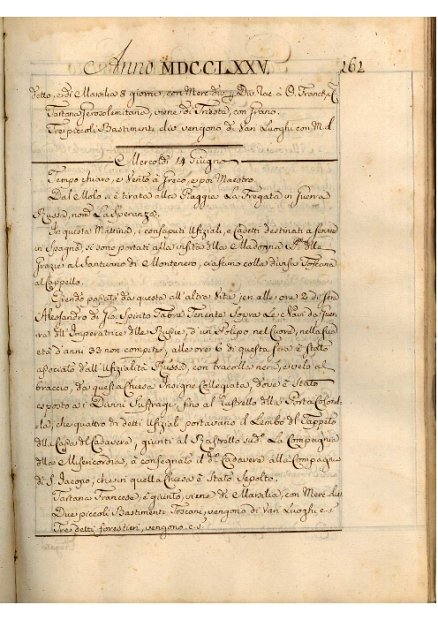 Anno MDCCLXXV. 262
detto, e di Marsilia 8 giorni, con Merc. div.
Tartana Gerosolimitana, viene di Trieste, con Grano.
Tre piccoli Bastimenti, che vengono di Vari Luoghi con M. d.
Mercoldì 14 Giugno
Tempo chiaro, e Vento a Greco, e poi Maestro.
Dal Molo si è tirata alle Piaggie La Fregata in guerra
Russa, nom. La Speranza.
In questa Mattina, i consaputi Ufiziali, e Cadetti destinati a servire
in Spagna, si sono portati alla visita della Madonna SS. delle
Grazie al Santuario di Montenero, ciascuno colla divisa Toscana
al Cappello.
Essendo passato da questa all'altra Vita jeri alle ore 2 di sera
Alessandro di Tenente Sopra Le Navi da guer
ra dell'Imperatrice delle Russie, d'un Polipo nel Cuore, nella sua
età d'anni 32 non compiti, alle ore 6 di questa sera è stato
associato dall'Ufizialità Russa, con tracolla nera, e velo al
braccio, da questa Chiesa Insigne Collegiata, dove è Stato
esposto a i Divini Suffragi, fino al Rastrello della Porta Colon
, che quattro di detti Ufiziali portavano il Lembo del Tappeto
della Cassa del Cadavere, giunti al Rastrello sud.º La Compagnia
della Misericordia, à consegnato il d.º Cadavere alla Compagnia
di S. Jacopo, che in quella Chiesa è Stato Sepolto.
Tartana Francese, è giunta, viene di Marsilia, con Merc. div.
Due piccoli Bastimenti Toscani, vengono di Vari Luoghi e.s.
Tre detti forestieri, vengono e.s.